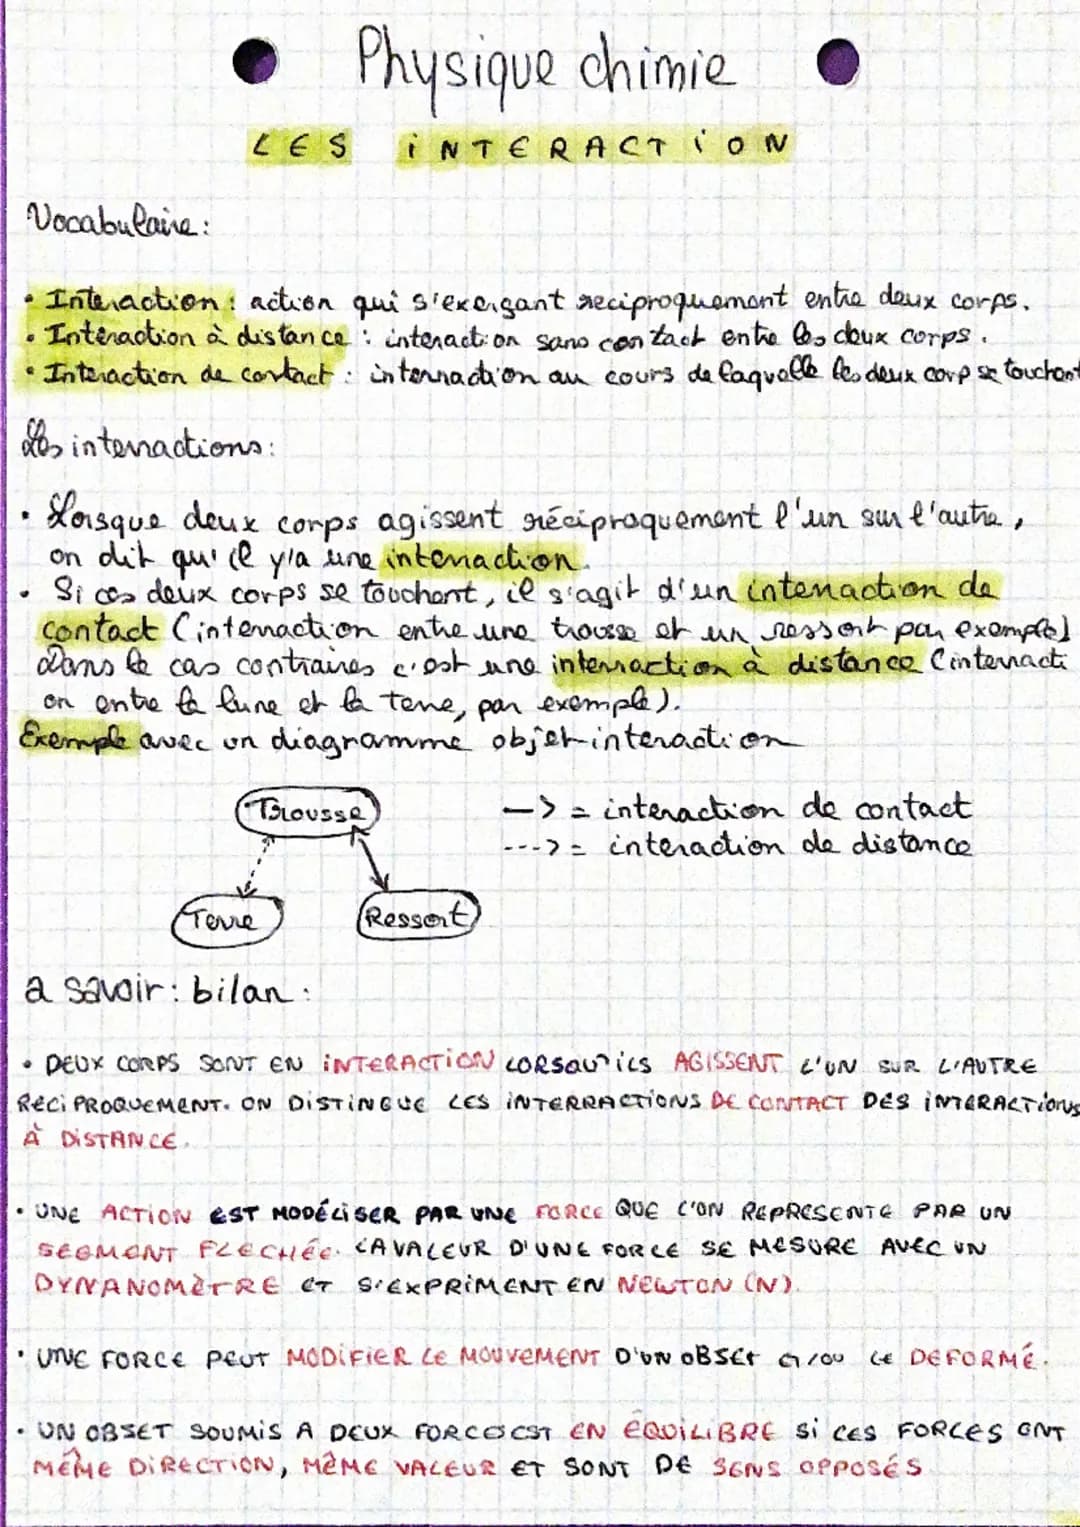 Physique chimie
LES INTERACTION
Vocabulaire:
• Interaction: action qui s'exerçant reciproquement entre deux corps.
• Interaction à distance: interaction sans contact entre les deux corps.
• Interaction de contact: interraction au cours de laquelle les deux corp se touchent
Les interractions:
• Lorsque deux corps agissent réciproquement l'un sur l'autre,
on dit qu'il y'a une interraction.
• Si ces deux corps se touchent, il s'agit d'un interraction de
contact (interraction entre une trousse et un ressort par exemple)
Dans le cas contraires c'est une interraction à distance (interracti
on entre la lune et la terre, par exemple).
Exemple avec un diagramme objet-interaction
Trousse
—> = interaction de contact
---> = interaction de distance
Terre
Ressort
a savoir: bilan:
• DEUX CORPS SONT EN INTERACTION LORSQU'ILS AGISSENT L'UN SUR L'AUTRE
RÉCIPROQUEMENT. ON DISTINGUE LES INTERRACTIONS DE CONTACT DES INTERACTIONS
À DISTANCE.
• UNE ACTION EST MODÉLISER PAR UNE FORCE QUE L'ON REPRESENTE PAR UN
SEGMENT FLECHÉE. LA VALEUR D'UNE FORCE SE MESURE AVEC UN
DYNANOMÈTRE ET S'EXPRIMENT EN NEWTON (N).
• UNE FORCE PEUT MODIFIER LE MOUVEMENT D'UN OBJET ET/OU LE DEFORMÉ.
• UN OBJET SOUMIS A DEUX FORCES EST EN ÉQUILIBRE SI CES FORCES ONT
MÊME DIRECTION, MÊME VALEUR ET SONT DE SENS OPPOSÉS